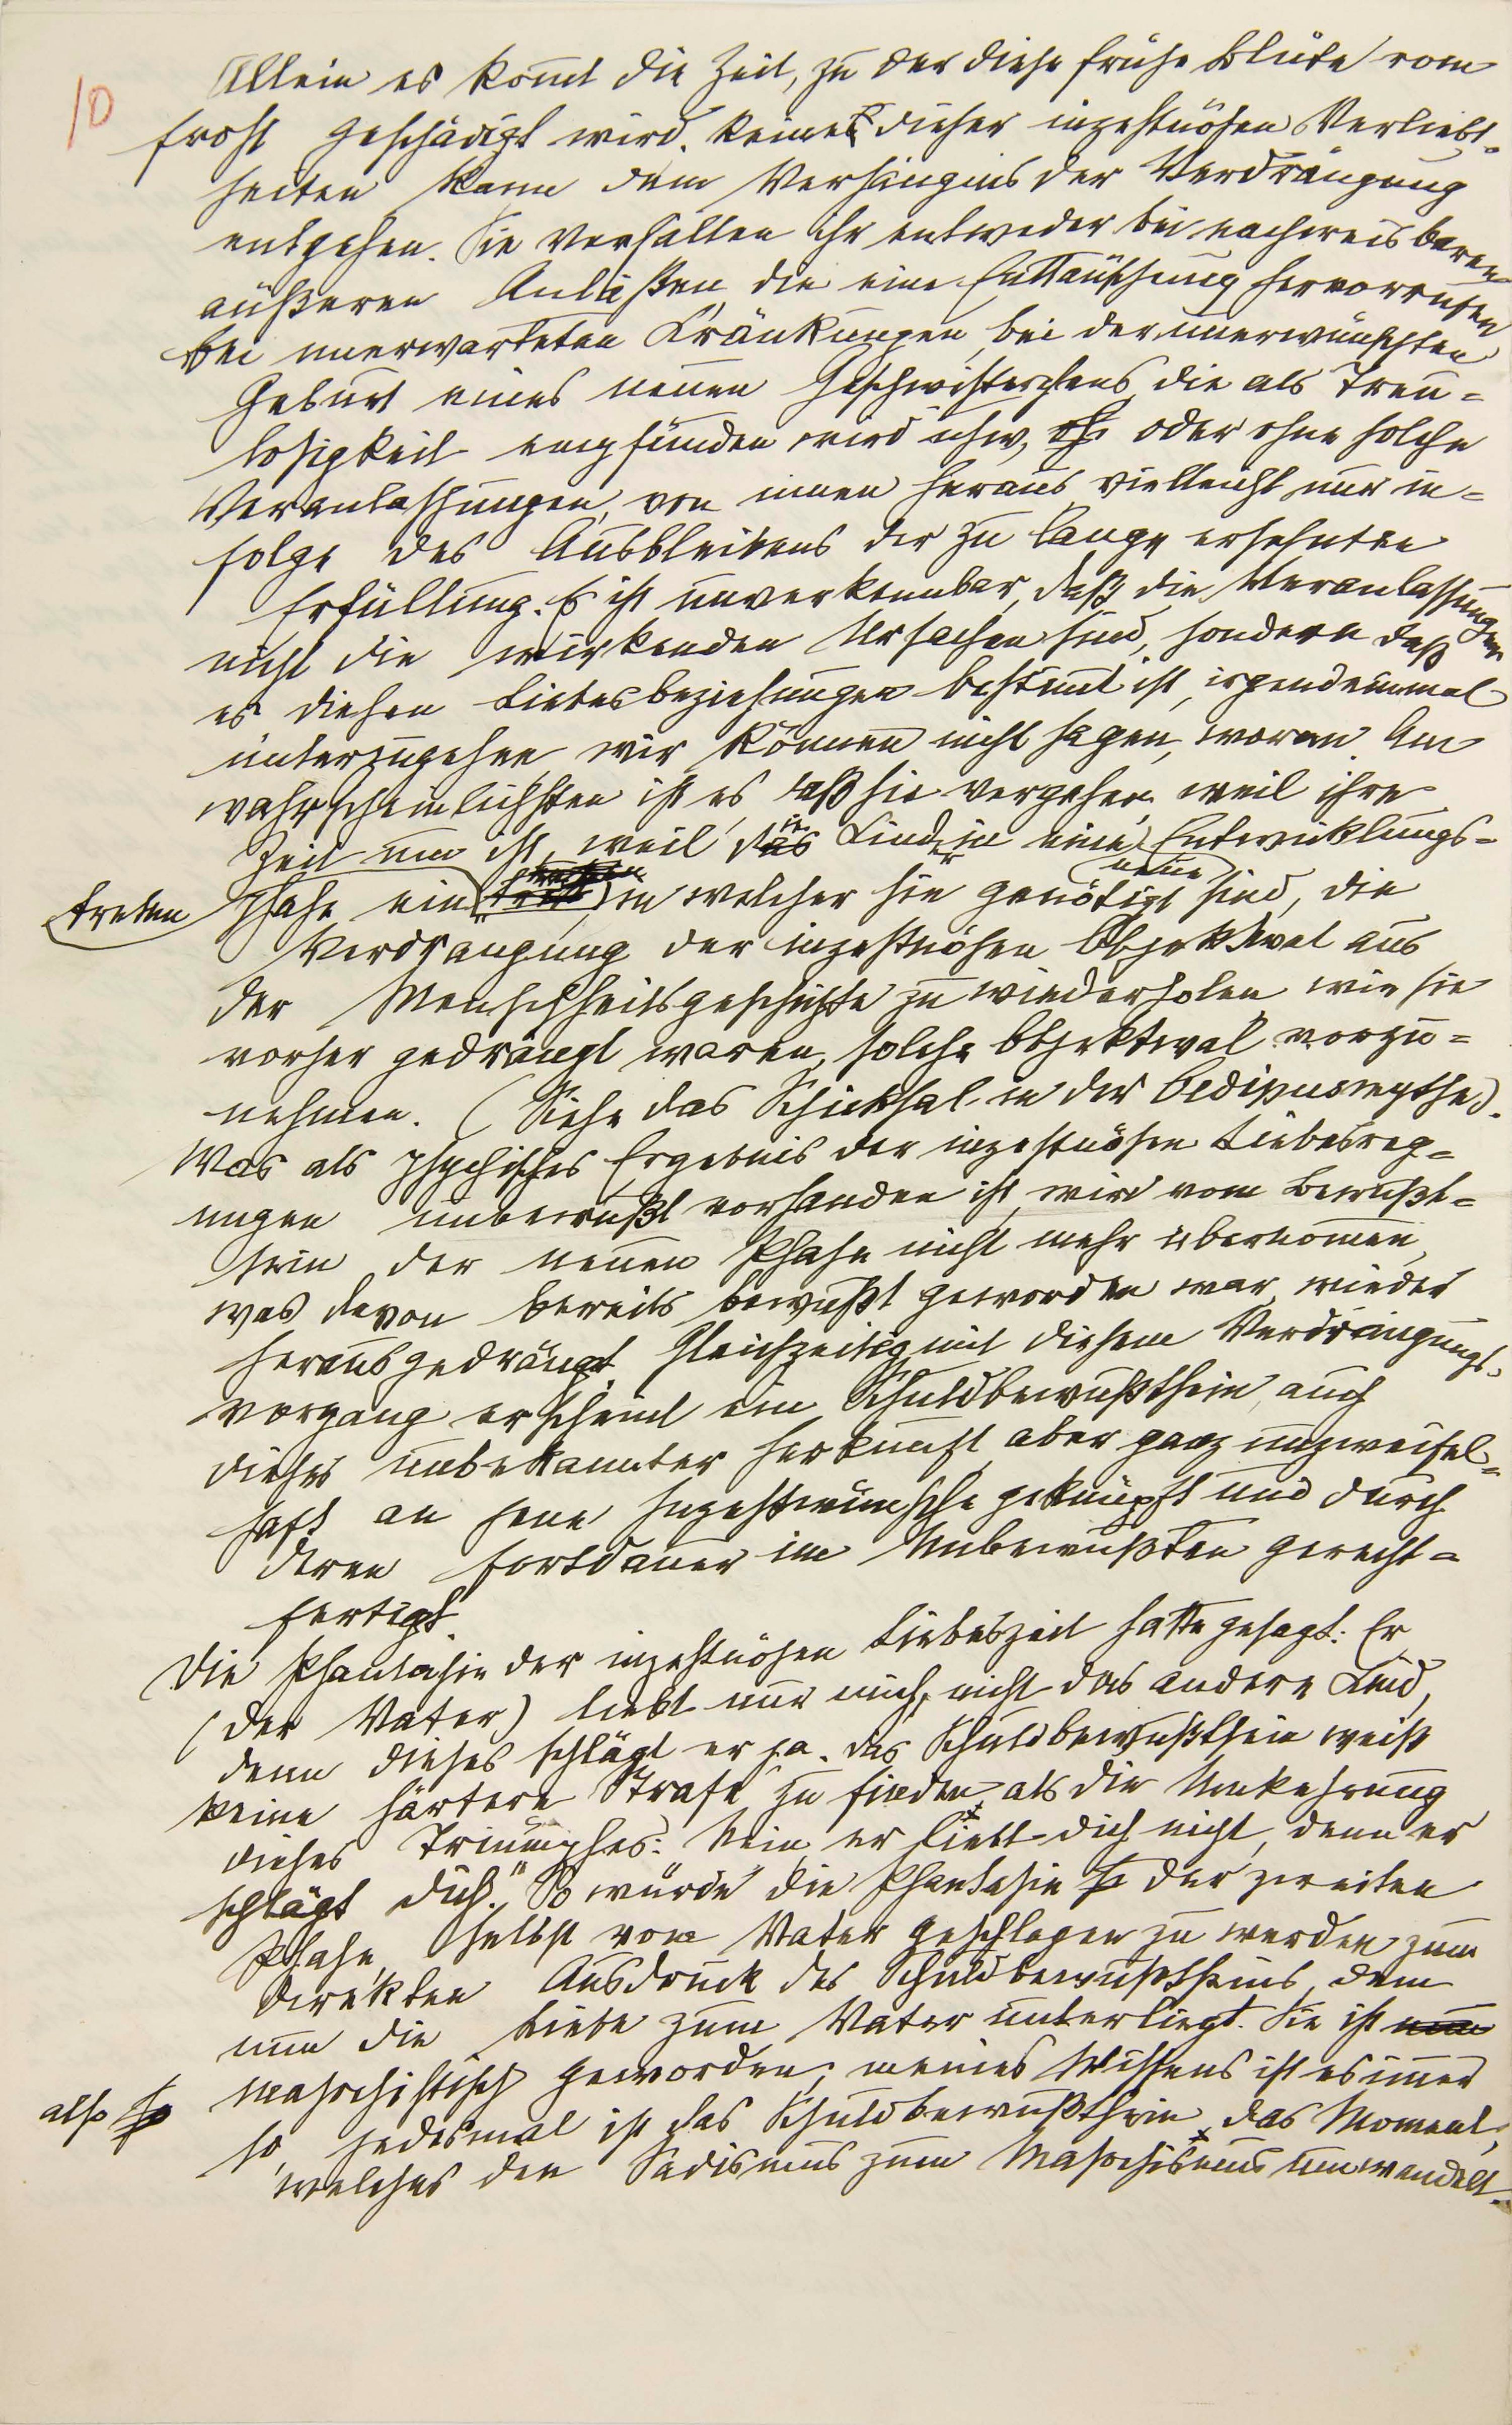 10
Allein es kommt die Zeit, zu der diese frühe Blüte vom
Frost geschädigt wird. Keine dieser inzestuösen Verliebt-
heiten kann dem Verhängnis der Verdrängung
entgehen. Sie verfallen ihr entweder bei nachweisbaren
äußeren Anläßen, die eine Enttäuschung hervorrufen
bei unerwarteten Kränkungen, bei der unerwünschten
Geburt eines neuen Geschwisterchens, die als Treu=
losigkeit empfunden wird usw, oder ohne solche
Veranlassungen, von innen heraus, vielleicht nur in=
folge des Ausbleibens der zu lange ersehnten
Erfüllung. Es ist unverkennbar, daß die Veranlassungen
nicht die wirkenden Ursachen sind, sondern daß
es diesen Liebesbeziehungen bestimmt ist, irgendeinmal
unterzugehen wir können nicht sagen, woran. Am
wahrscheinlichsten ist es, daß sie vergehen, weil ihre
Zeit um ist, weil die Kinder in eine neue Entwicklungs=
treten
phase ein in welcher sie genötigt sind, die
Verdrängung der inzestuösen Objektwal aus
der Menschheitsgeschichte zu wiederholen wie sie
vorher gedrängt waren, solche Objektwal vorzu=
nehmen. (Siehe das Schicksal in der Oedipusmythe).
Was als psychisches Ergebnis der inzestuösen Liebesreg=
ungen unbewußt vorhanden ist, wird vom Bewußt=
sein der neuen Phase nicht mehr übernommen,
was davon bereits bewußt geworden war, wieder
herausgedrängt. Gleichzeitig mit diesem Verdrängungs-
vorgang erscheint ein Schuldbewußtsein, auch
dieses unbekannter Herkunft, aber ganz unzweifel=
haft an jene Inzestwünsche geknüpft und durch
deren Fortdauer im Unbewußten gerecht=
fertigt.
Die Phantasie der inzestuösen Liebeszeit hatte gesagt: Er
(der Vater) liebt nur mich, nicht das andere Kind,
denn dieses schlägt er ja. Das Schuldbewußtsein weiß
keine härtere Strafe zu finden, als die Umkehrung
dieses Triumphes: Nein, er liebt dich nicht, denn er
schlägt dich." So würde die Phantasie der zweiten
Phase, selbst vom Vater geschlagen zu werden zum
direkten Ausdruck des Schuldbewußtseins, dem
nun die Liebe zum Vater unterliegt. Sie ist
also
masochistisch geworden; meines Wissens ist es immer
so, jedesmal ist das Schuldbewußtsein das Moment,
welches den Sadismus zum Masochismus umwandelt.